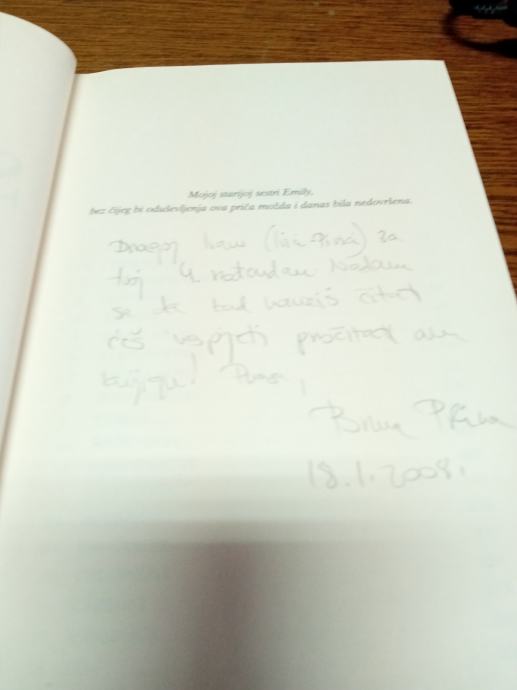 Mojoj starijoj sestri Emily,
bez čijeg bi oduševljenja ova priča možda i danas bila nedovršena.
Dragoj za
tvoj 4. rođendan. Nadam
se da kad naučiš čitati
ćeš uspjeti pročitati ovu
knjigu! Pusa,
18.1.2008.